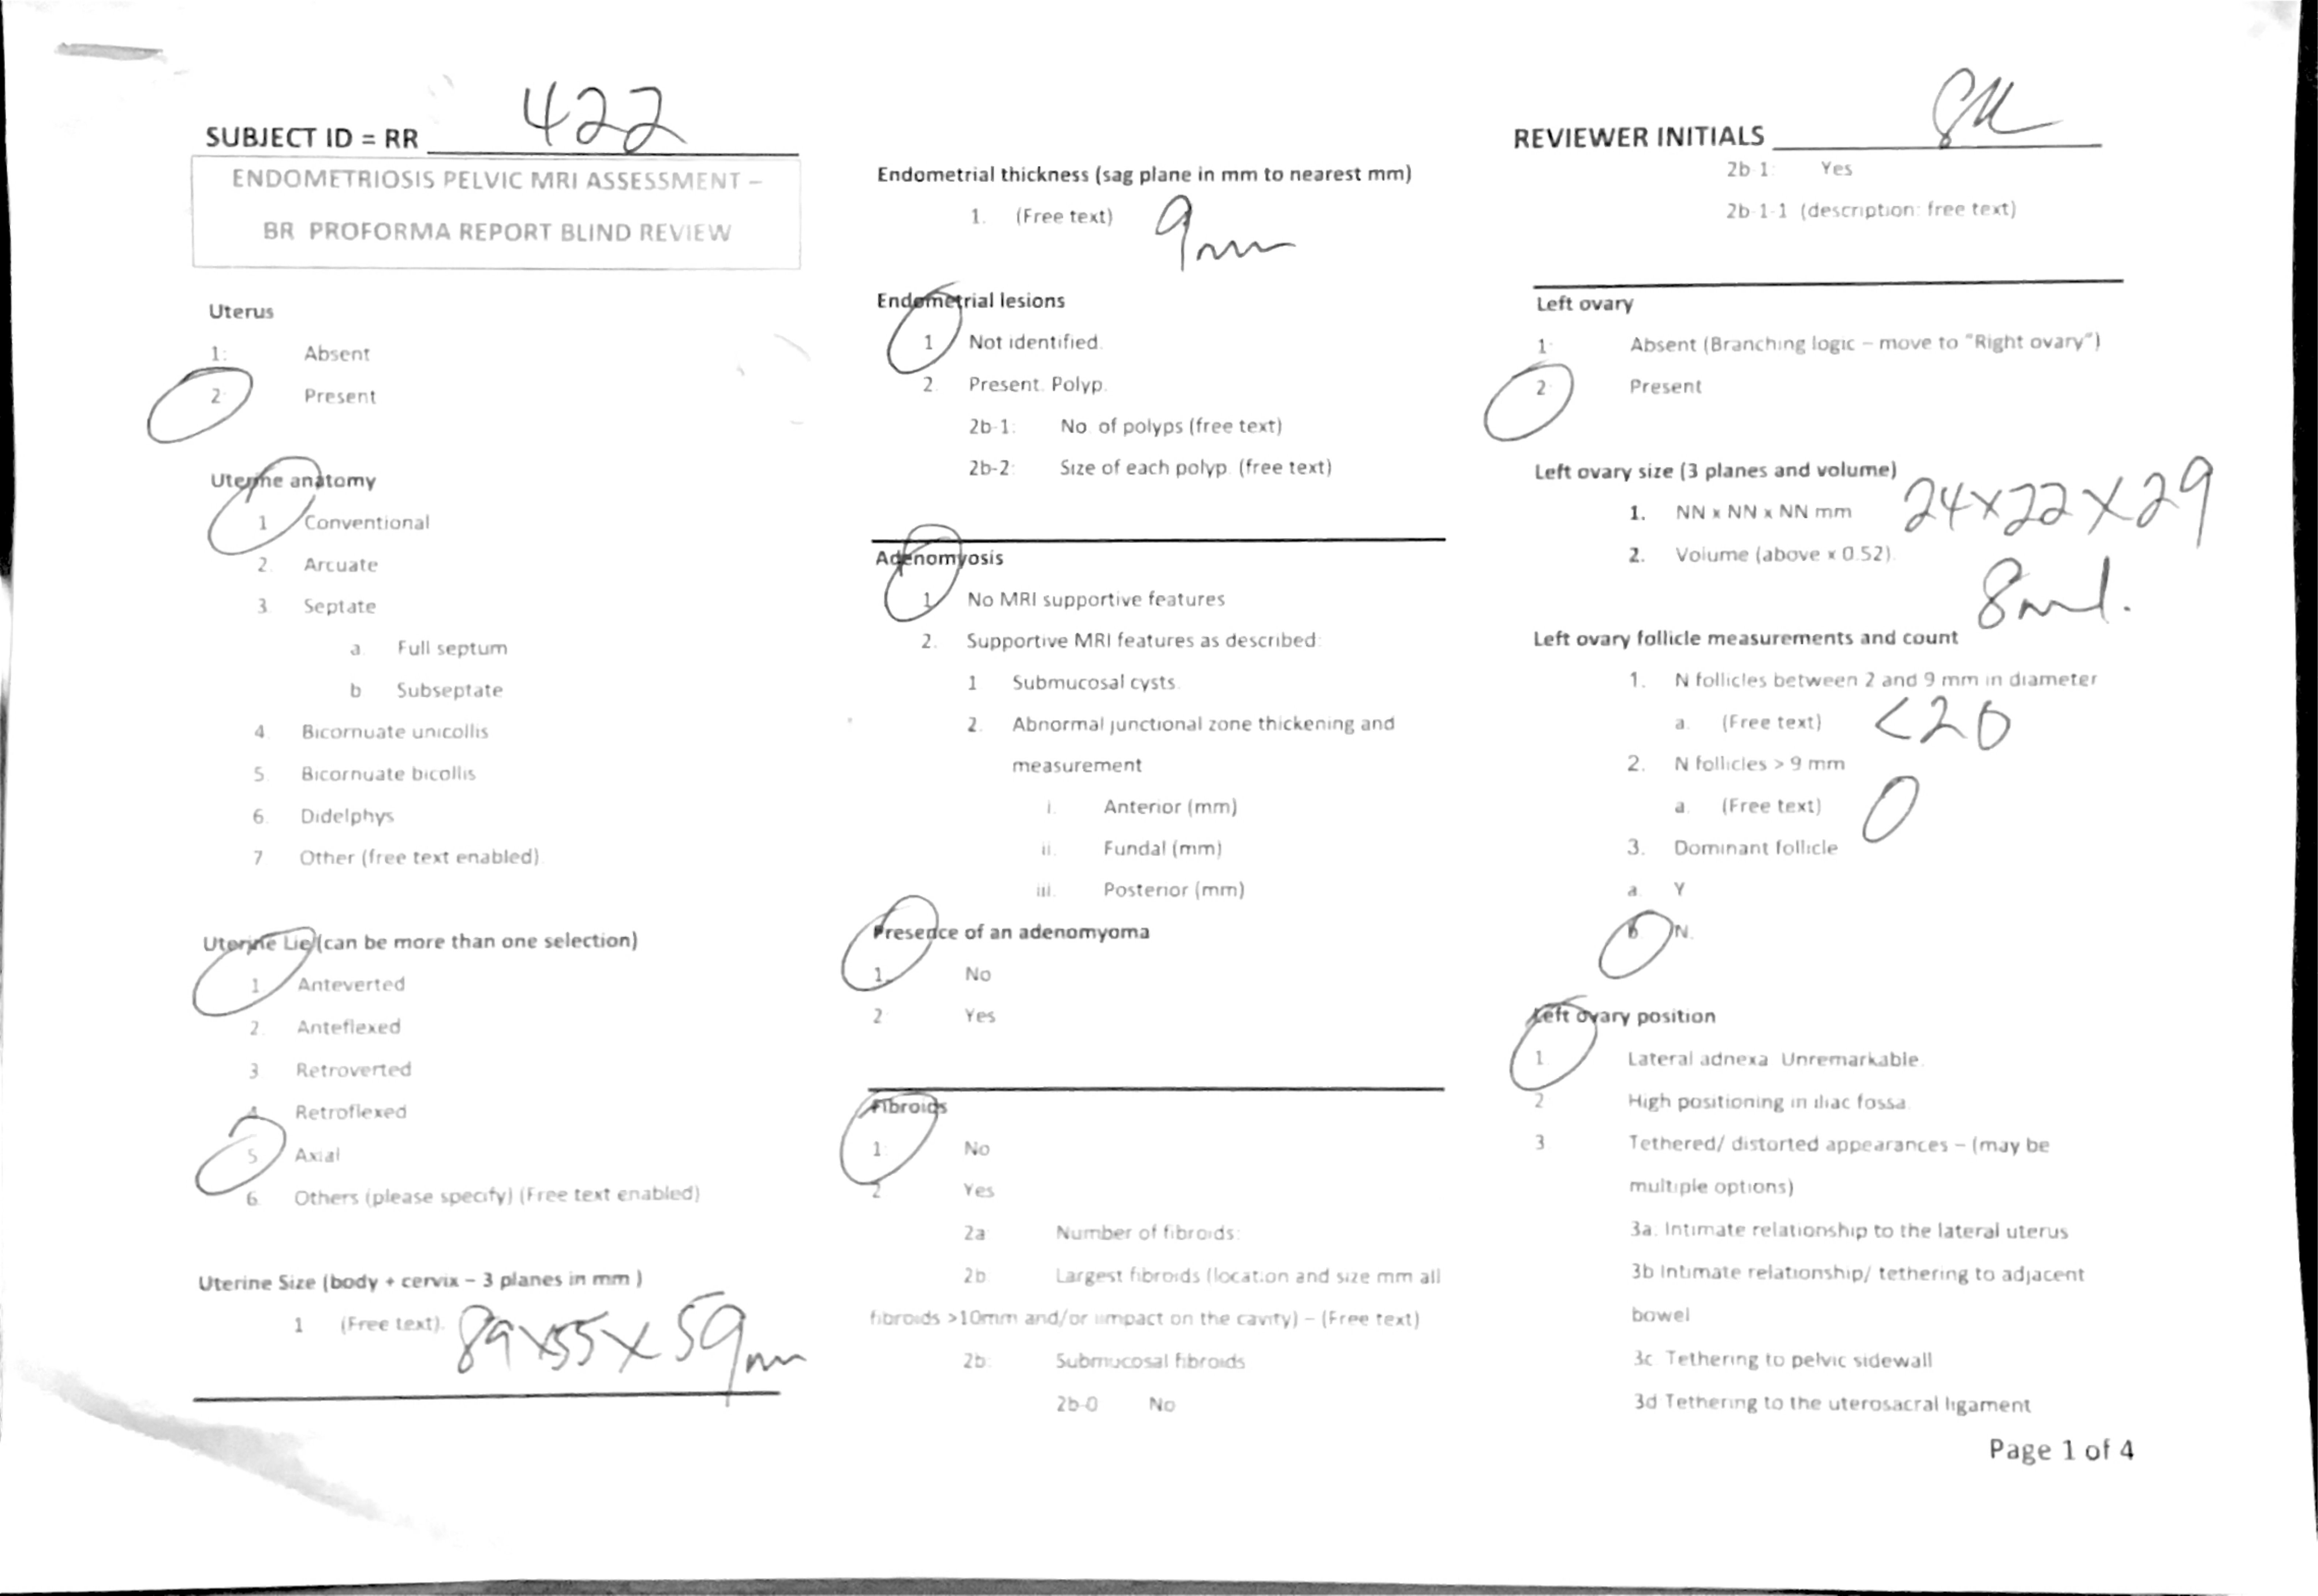 SUBJECT ID = RR 422
ENDOMETRIOSIS PELVIC MRI ASSESSMENT –
BR PROFORMA REPORT BLIND REVIEW
Uterus
1: Absent
2: Present
Uterine anatomy
1 Conventional
2. Arcuate
3. Septate
a. Full septum
b Subseptate
4. Bicornuate unicollis
5. Bicornuate bicollis
6. Didelphys
7 Other (free text enabled)
Uterine Lie (can be more than one selection)
1 Anteverted
2. Anteflexed
3 Retroverted
4 Retroflexed
5 Axial
6. Others (please specify) (Free text enabled)
Uterine Size (body + cervix – 3 planes in mm )
1 (Free text). 89x55x59mm
Endometrial thickness (sag plane in mm to nearest mm)
1. (Free text) 9mm
Endometrial lesions
1 Not identified.
2. Present. Polyp.
2b-1: No of polyps (free text)
2b-2: Size of each polyp. (free text)
Adenomyosis
1 No MRI supportive features
2. Supportive MRI features as described:
1 Submucosal cysts.
2. Abnormal junctional zone thickening and
measurement
i. Anterior (mm)
ii. Fundal (mm)
iii. Posterior (mm)
Presence of an adenomyoma
1. No
2: Yes
Fibroids
1: No
2 Yes
2a Number of fibroids:
2b Largest fibroids (location and size mm all
fibroids >10mm and/or iimpact on the cavity) – (Free text)
2b: Submucosal fibroids
2b-0 No
REVIEWER INITIALS
2b-1: Yes
2b-1-1 (description: free text)
Left ovary
1: Absent (Branching logic – move to "Right ovary")
2: Present
Left ovary size (3 planes and volume)
1. NN x NN x NN mm 24x22x29
2. Volume (above x 0.52). 8ml.
Left ovary follicle measurements and count
1. N follicles between 2 and 9 mm in diameter
a. (Free text) <20
2. N follicles > 9 mm
a. (Free text) 0
3. Dominant follicle
a. Y
b N.
Left ovary position
1 Lateral adnexa Unremarkable.
2 High positioning in iliac fossa.
3 Tethered/ distorted appearances – (may be
multiple options)
3a. Intimate relationship to the lateral uterus
3b Intimate relationship/ tethering to adjacent
bowel
3c Tethering to pelvic sidewall
3d Tethering to the uterosacral ligament
Page 1 of 4